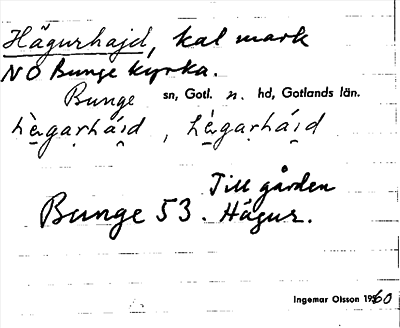 Hägurhajd, kal mark
NO Bunge kyrka.
Bunge sn, Gotl. n. hd, Gotlands län.
Till gården
Bunge 53. Hägur.
Ingemar Olsson 1960